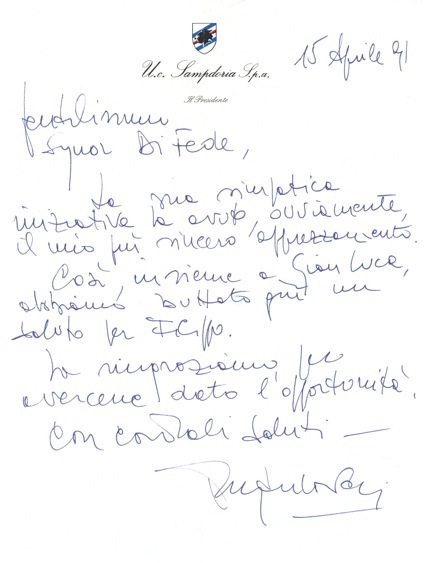 U.c. Sampdoria S.p.a.
Il Presidente
15 Aprile 91
Gentilissimo
Signor Di Fede,
La sua simpatica
iniziativa ha avuto, ovviamente,
il mio più sincero apprezzamento.
Così, insieme a Gian Luca,
abbiamo buttato giù un
saluto per Filippo.
La ringraziamo per
avercene dato l'opportunità.
Con cordiali saluti —